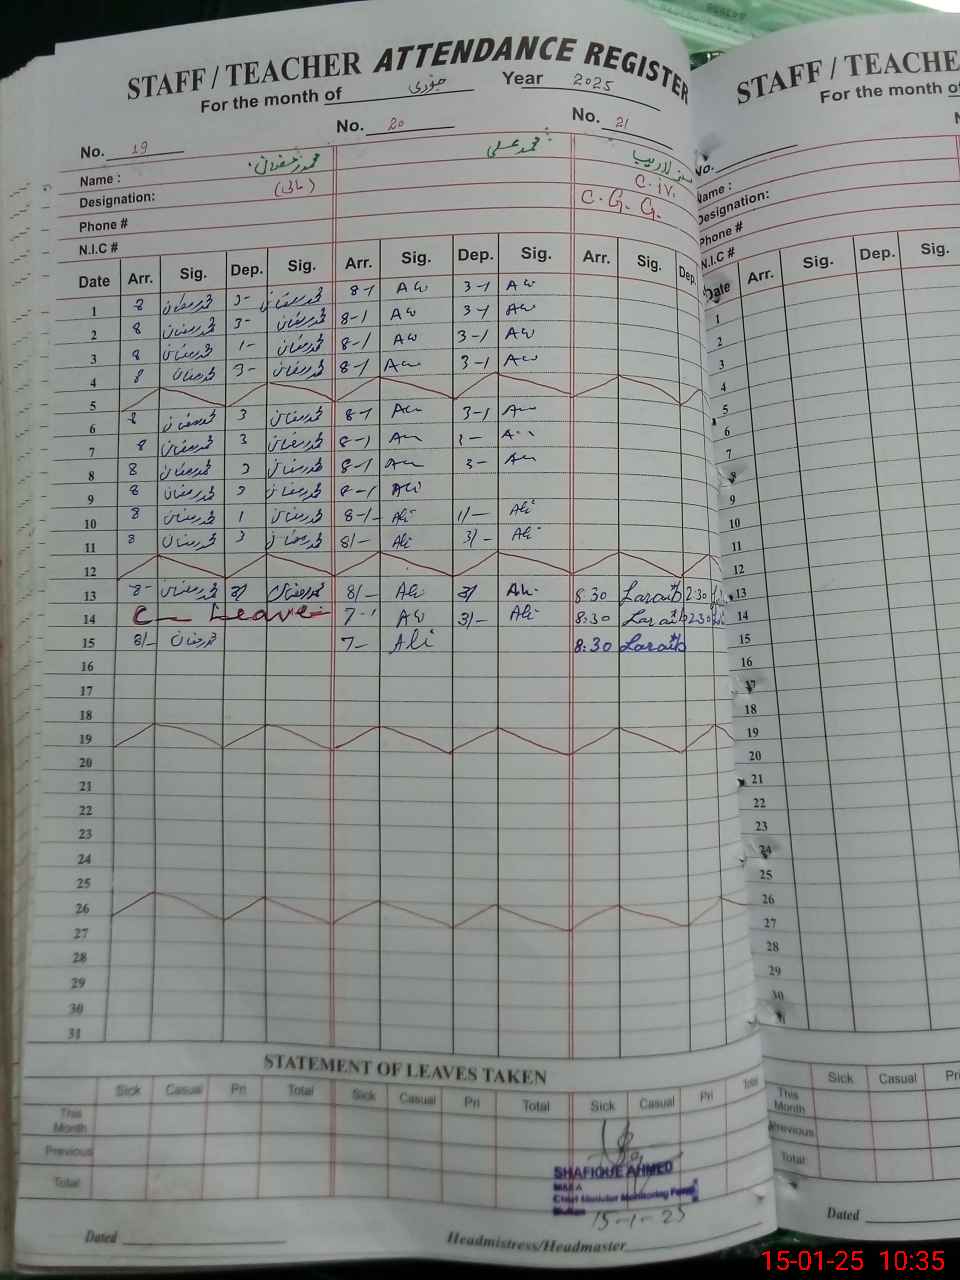 STAFF / TEACHER ATTENDANCE REGISTER
For the month of جنوری Year 2025
No. 19 No. 20 No. 21
Name : محمد رمضان محمد علی
Designation: (مالی) C. iv.
Phone # C. G. G.
N.I.C #
Date Arr. Sig. Dep. Sig. Arr. Sig. Dep. Sig. Arr. Sig. Dep.
1 8 محمد رمضان 3- محمد رمضان 8-1 3-1
2 8 محمد رمضان 3- محمد رمضان 8-1 3-1
3 8 محمد رمضان 1- محمد رمضان 8-1 3-1
4 8 محمد رمضان 3- محمد رمضان 8-1 3-1
5
6 8 محمد رمضان 3 محمد رمضان 8-1 3-1
7 8 محمد رمضان 3 محمد رمضان 8-1
8 8 محمد رمضان 3 محمد رمضان 8-1 3-
9 8 محمد رمضان 3 محمد رمضان 8-1
10 8 محمد رمضان 1 محمد رمضان 8-1- Ali 1/- Ali
11 8 محمد رمضان 3 محمد رمضان 8/- Ali 3/- Ali
12
13 8- محمد رمضان 3/ محمد رمضان 8/- Ali 3/ Ali 8:30 Laraib 2:30
14 C- Leave 7-1 3/- Ali 8:30 Laraib 2:30
15 8/- محمد رمضان 7- Ali 8:30 Laraib
16
17
18
19
20
21
22
23
24
25
26
27
28
29
30
31
STATEMENT OF LEAVES TAKEN
Sick Casual Pri Total Sick Casual Pri Total Sick Casual Pri Total
This Month
Previous
Total
SHAFIQUE AHMED
MAEA
Chief Minister Monitoring Force
Multan
15-1-25
Dated Headmistress/Headmaster
STAFF / TEACHE
For the month of
No.
Name :
Designation:
Phone #
N.I.C #
Date Arr. Sig. Dep. Sig.
1
2
3
4
5
6
7
8
9
10
11
12
13
14
15
16
17
18
19
20
21
22
23
24
25
26
27
28
29
30
Sick Casual Pri
This Month
Previous
Total
Dated
15-01-25 10:35